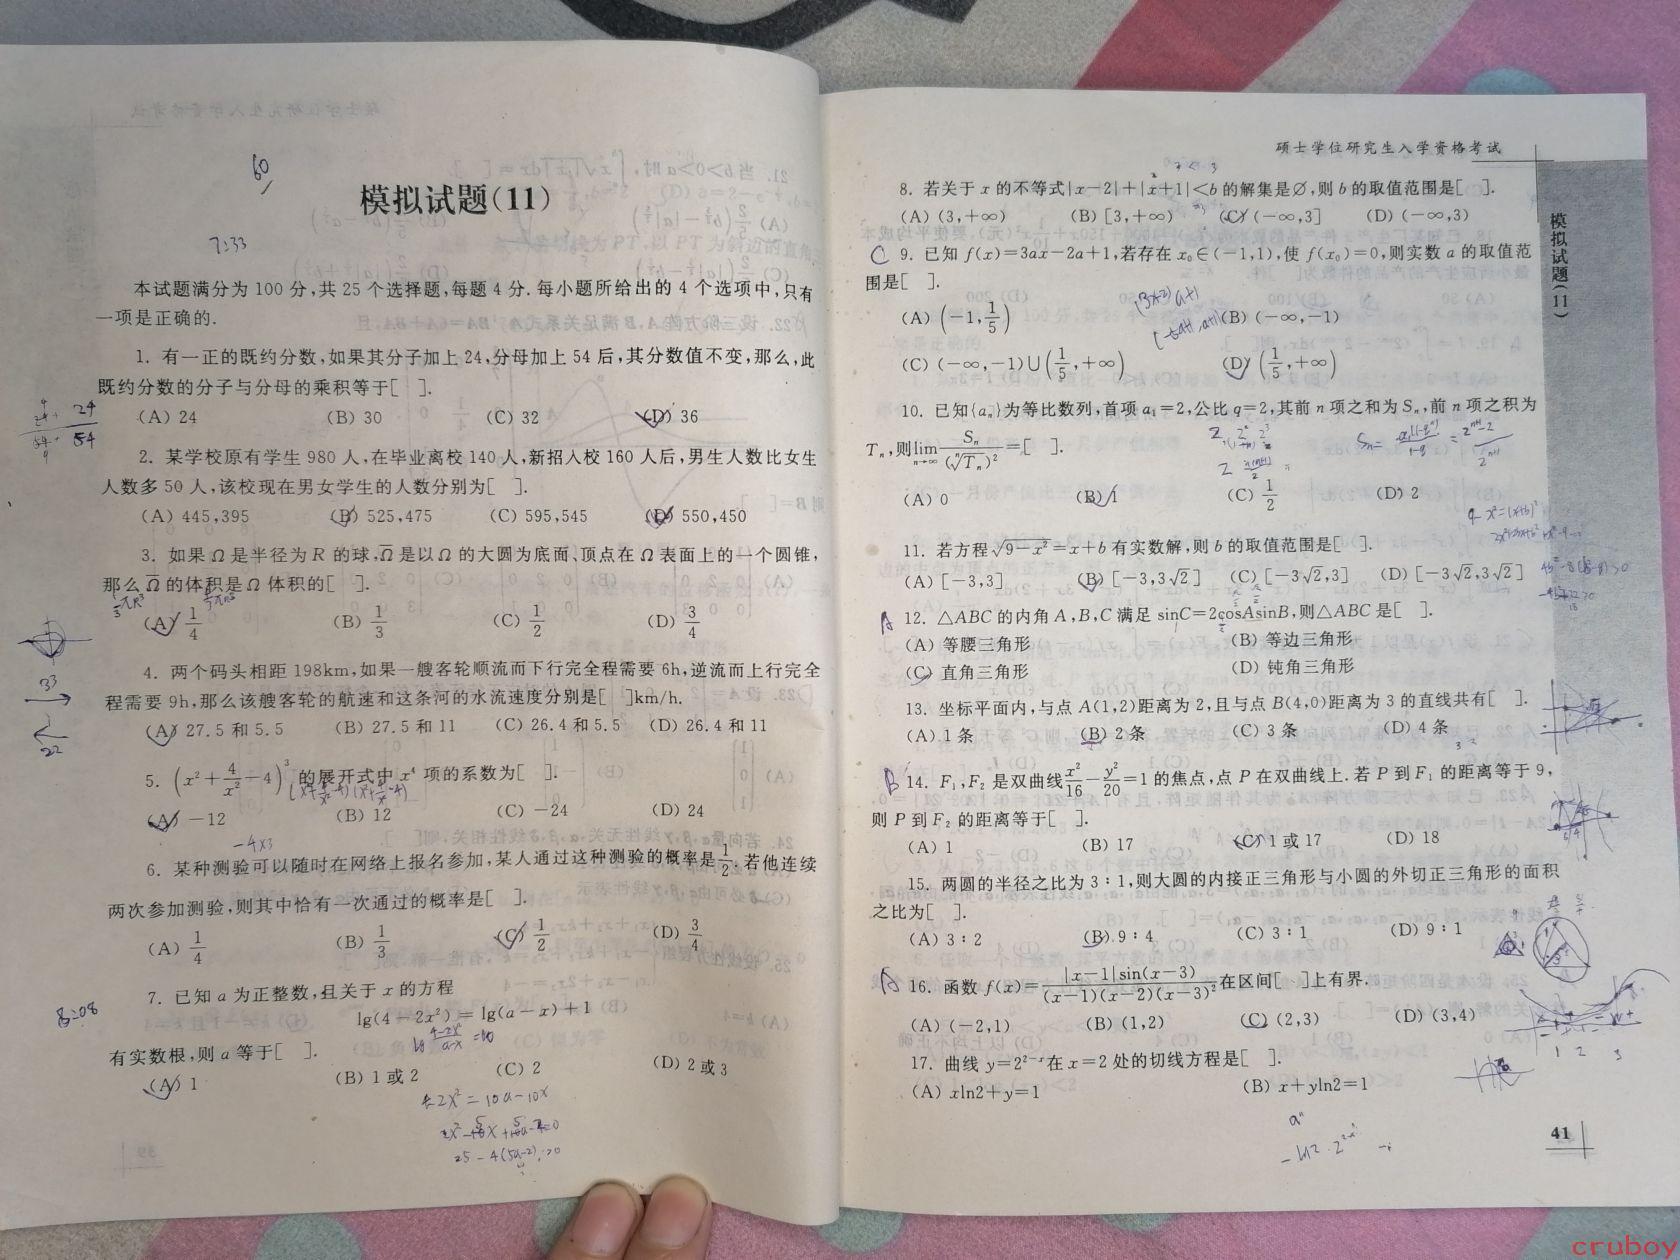 60
模拟试题(11)
7:33
本试题满分为 100 分,共 25 个选择题,每题 4 分. 每小题所给出的 4 个选项中,只有
一项是正确的.
1. 有一正的既约分数,如果其分子加上 24,分母加上 54 后,其分数值不变,那么,此
既约分数的分子与分母的乘积等于[ ].
(A) 24 (B) 30 (C) 32 (D) 36
2. 某学校原有学生 980 人,在毕业离校 140 人,新招入校 160 人后,男生人数比女生
人数多 50 人,该校现在男女学生的人数分别为[ ].
(A) 445,395 (B) 525,475 (C) 595,545 (D) 550,450
3. 如果 Ω 是半径为 R 的球,Ω̅ 是以 Ω 的大圆为底面、顶点在 Ω 表面上的一个圆锥,
那么 Ω̅ 的体积是 Ω 体积的[ ].
(A) 1/4 (B) 1/3 (C) 1/2 (D) 3/4
4. 两个码头相距 198km,如果一艘客轮顺流而下行完全程需要 6h,逆流而上行完全
程需要 9h,那么该艘客轮的航速和这条河的水流速度分别是[ ]km/h.
(A) 27.5 和 5.5 (B) 27.5 和 11 (C) 26.4 和 5.5 (D) 26.4 和 11
33
22
5. (x²+4/x²−4)³ 的展开式中 x⁴ 项的系数为[ ].
(A) −12 (B) 12 (C) −24 (D) 24
-4×3
6. 某种测验可以随时在网络上报名参加,某人通过这种测验的概率是 1/2. 若他连续
两次参加测验,则其中恰有一次通过的概率是[ ].
(A) 1/4 (B) 1/3 (C) 1/2 (D) 3/4
7. 已知 a 为正整数,且关于 x 的方程
lg(4−2x²)=lg(a−x)+1
有实数根,则 a 等于[ ].
(A) 1 (B) 1 或 2 (C) 2 (D) 2 或 3
8:08
4-2x²=10a-10x
硕士学位研究生入学资格考试
模拟试题(11)
8. 若关于 x 的不等式|x−2|+|x+1|<b 的解集是∅,则 b 的取值范围是[ ].
(A) (3,+∞) (B) [3,+∞) (C) (−∞,3] (D) (−∞,3)
C 9. 已知 f(x)=3ax−2a+1,若存在 x₀∈(−1,1),使 f(x₀)=0,则实数 a 的取值范
围是[ ].
(A) (−1,1/5) (B) (−∞,−1)
(C) (−∞,−1)∪(1/5,+∞) (D) (1/5,+∞)
10. 已知{aₙ}为等比数列,首项 a₁=2,公比 q=2,其前 n 项之和为 Sₙ,前 n 项之积为
Tₙ,则 lim n→∞ Sₙ/(ⁿ√Tₙ)²=[ ].
(A) 0 (B) 1 (C) 1/2 (D) 2
11. 若方程√(9−x²)=x+b 有实数解,则 b 的取值范围是[ ].
(A) [−3,3] (B) [−3,3√2] (C) [−3√2,3] (D) [−3√2,3√2]
A 12. △ABC 的内角 A,B,C 满足 sinC=2cosAsinB,则△ABC 是[ ].
(A) 等腰三角形 (B) 等边三角形
(C) 直角三角形 (D) 钝角三角形
13. 坐标平面内,与点 A(1,2)距离为 2,且与点 B(4,0)距离为 3 的直线共有[ ].
(A) 1 条 (B) 2 条 (C) 3 条 (D) 4 条
B 14. F₁,F₂ 是双曲线 x²/16−y²/20=1 的焦点,点 P 在双曲线上. 若 P 到 F₁ 的距离等于 9,
则 P 到 F₂ 的距离等于[ ].
(A) 1 (B) 17 (C) 1 或 17 (D) 18
15. 两圆的半径之比为 3∶1,则大圆的内接正三角形与小圆的外切正三角形的面积
之比为[ ].
(A) 3∶2 (B) 9∶4 (C) 3∶1 (D) 9∶1
A 16. 函数 f(x)=|x−1|sin(x−3)/((x−1)(x−2)(x−3)²)在区间[ ]上有界.
(A) (−2,1) (B) (1,2) (C) (2,3) (D) (3,4)
17. 曲线 y=2²⁻ˣ在 x=2 处的切线方程是[ ].
(A) xln2+y=1 (B) x+yln2=1
41
cruboy